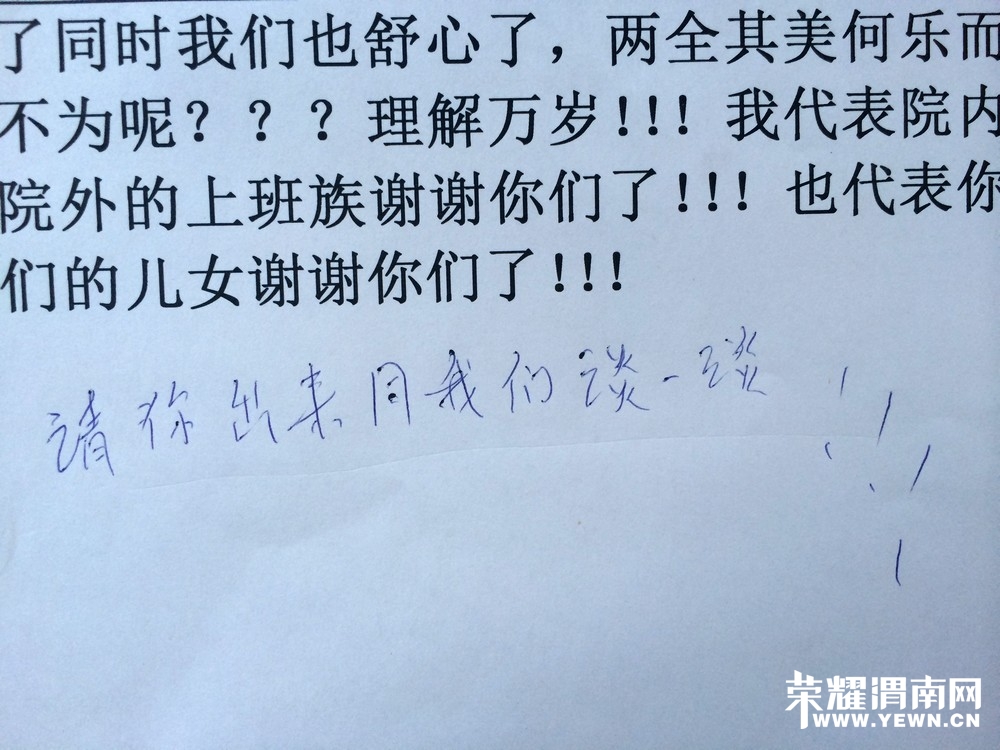 了同时我们也舒心了，两全其美何乐而
不为呢？？？理解万岁!!!我代表院内
院外的上班族谢谢你们了!!!也代表你
们的儿女谢谢你们了!!!
请你出来同我们谈一谈!!!
荣耀渭南网
WWW.YEWN.CN